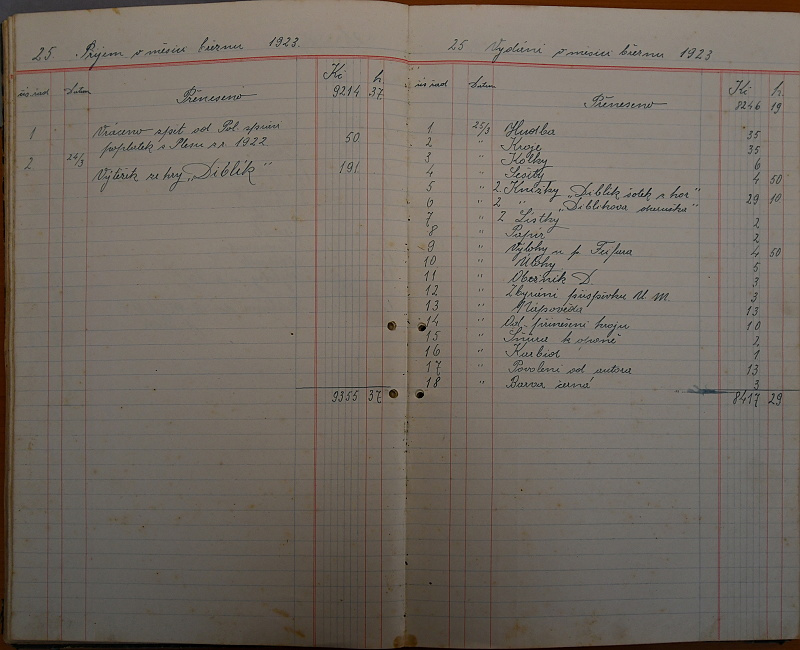 25. Příjem v měsíci březnu 1923.
Kč h
čís řad Datum
Přeneseno 9214 37
1 Vráceno zpět od Pol. správy
poplatek z Plesu z r. 1922 50
2 24/3 Výtěžek ze hry „Diblík" 191
9355 37
25 Vydání v měsíci březnu 1923
čís řad Datum Kč h
Přeneseno 8246 19
1 25/3 Hudba 35
2 " Kroje 35
3 " Kolky 6
4 " Sešity 4 50
5 " 2 Knížky „Diblík šotek z hor" 29 10
6 " 2 " „Diblíkova
7 " 2 Lístky 2
8 " Papír 2
9 " Výlohy u p. Fufara 4 50
10 " Úlohy 5
11 " Oběžník D. 3
12 " Zbýrání příspěvku U. M. 3
13 " Nápověda 13
14 " Od přinešení kroju 10
15 " Šňůra k oponě 2
16 " Karbid 1
17 " Povolení od autora 13
18 " Barva černá 3
8417 29